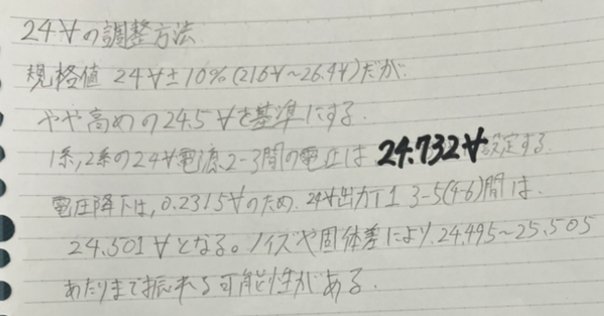 24Vの調整方法
規格値 24V±10%(216V~26.4V)だが
やや高めの24.5Vを基準にする.
1系,2系の24V電源2-3間の電圧は 24.732V設定する.
電圧降下は,0.2315Vのため.24V出力T1 3-5(4-6)間は.
24.501Vとなる。ノイズや固体差により.24.495~25.505
あたりまで振れる可能性がある.